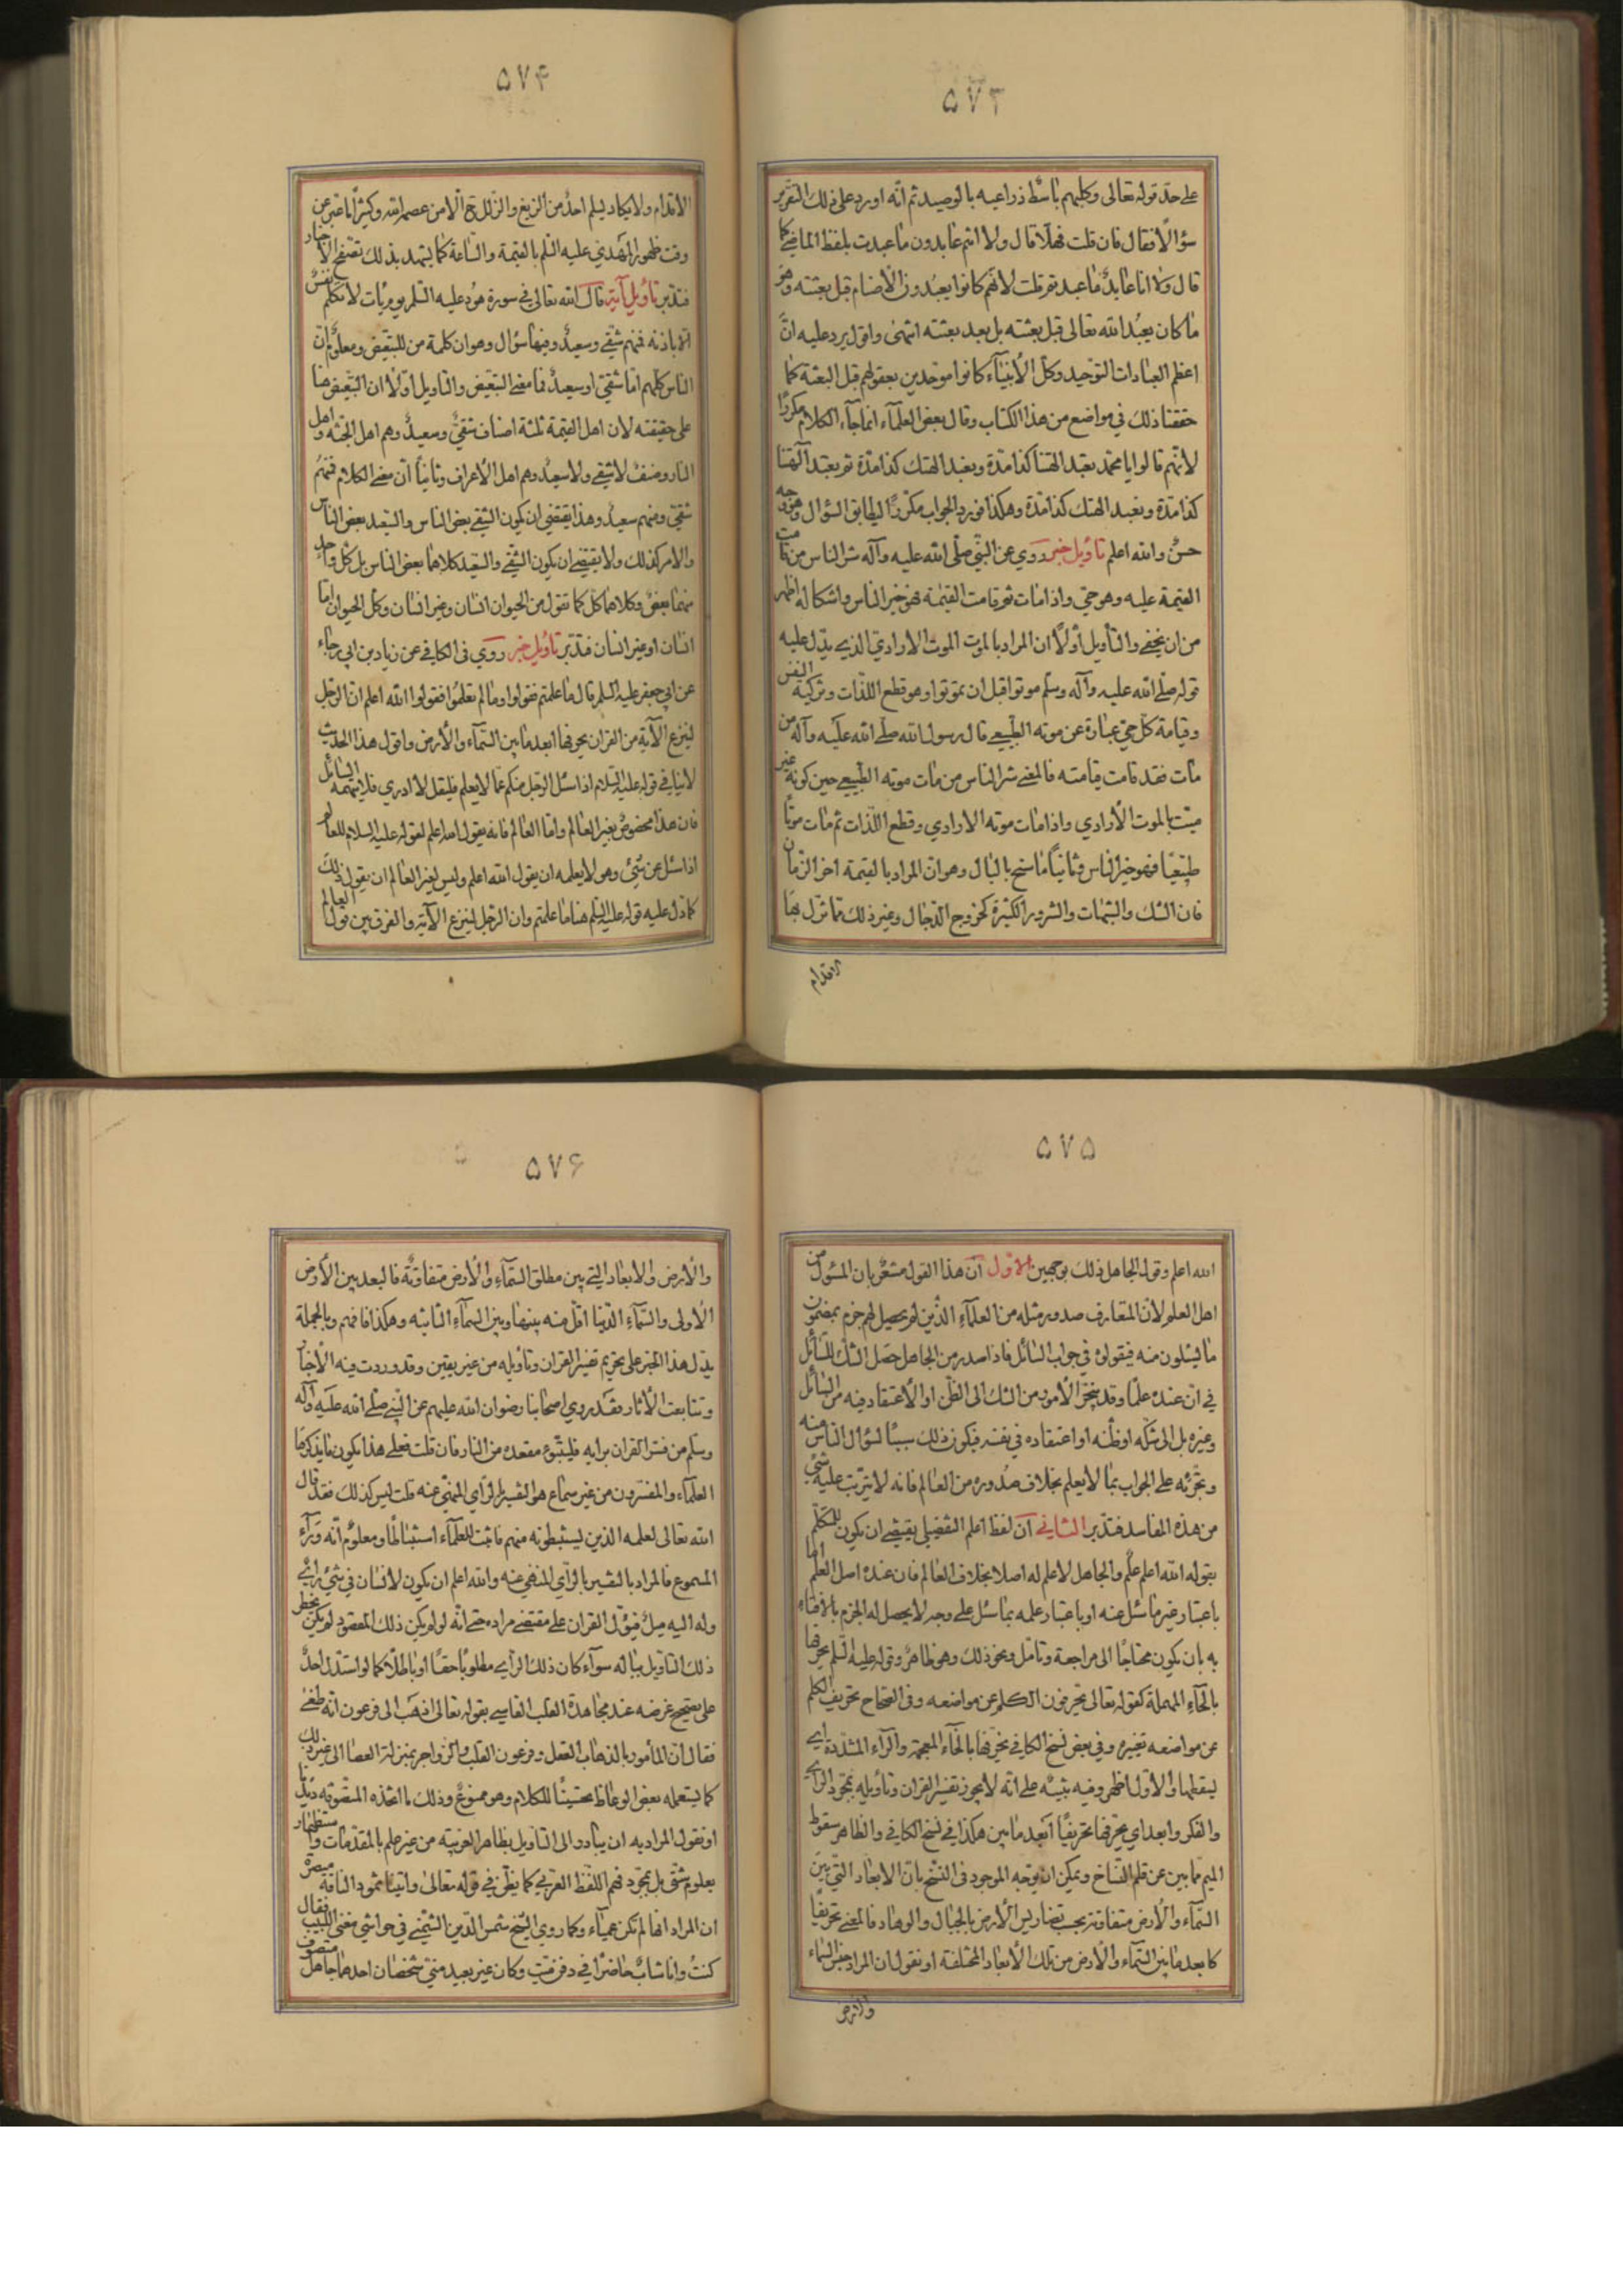 ۵۷۳
على حد قوله تعالى وكلبهم باسط ذراعيه بالوصيد ثم انه اورد على ذلك التقرير
سؤالا فقال فان قلت فهلا قال ولا انتم عابدون ما عبدت بلفظ الماضي كما
قال ولا انا عابد ما عبدتم قلت لانهم كانوا يعبدون الاصنام قبل بعثته وهو
ما كان يعبد الله تعالى قبل بعثته بل بعد بعثته انتهى واقول يرد عليه ان
اعظم العبادات التوحيد وكل الانبياء كانوا موحدين بعقولهم قبل البعثة كما
حققنا ذلك في مواضع من هذا الكتاب وقال بعض العلماء انما جاء الكلام مكررا
لانهم قالوا يا محمد تعبد الهتنا كذا مدة ونعبد الهتك كذا مدة ثم تعبد الهتنا
كذا مدة ونعبد الهتك كذا مدة وهكذا فورد الجواب مكررا ليطابق السؤال وهو وجه
حسن والله اعلم تاويل خبر روي عن النبي صلى الله عليه وآله شر الناس من قامت
القيمة عليه وهو حي واذا مات ثم قامت القيمة فهو خير الناس واشكاله اظهر
من ان يخفى والتأويل اولا ان المراد بالموت الموت الارادي الذي يدل عليه
قوله صلى الله عليه وآله وسلم موتوا قبل ان تموتوا وهو قطع اللذات وتزكية النفس
وقيامة كل حي عبارة عن موته الطبيعي قال رسول الله صلى الله عليه وآله من
مات فقد قامت قيامته فالمعنى شر الناس من مات موته الطبيعي حين كونه غير
ميت بالموت الارادي واذا مات موته الارادي وقطع اللذات ثم مات موتا
طبيعيا فهو خير الناس وثانيا ما سنح بالبال وهو ان المراد بالقيمة اخر الزمان
فان الشك والشبهات والشرور الكثيرة كخروج الدجال وغير ذلك مما تزل بها
الاقدام
۵۷۴
الاقدام ولا يكاد يسلم احد من الزيغ والزلل ح الا من عصمه الله وكثيرا ما عبر عن
وقت ظهور المهدي عليه السلم بالقيمة والساعة كما يشهد بذلك تصفح الاخبار
فتدبر تاويل آية قال الله تعالى في سورة هود عليه السلم يوم يأت لا تكلم نفس
الا باذنه فمنهم شقي وسعيد وفيها سؤال وهو ان كلمة من للتبعيض ومعلوم ان
الناس كلهم اما شقي او سعيد فما معنى التبعيض والتاويل اولا ان التبعيض هنا
على حقيقته لان اهل القيمة ثلثة اصناف شقي وسعيد وهم اهل الجنة واهل
النار وصنف لا شقي ولا سعيد وهم اهل الاعراف وثانيا ان معنى الكلام فمنهم
شقي ومنهم سعيد وهذا يقتضي ان يكون الشقي بعض الناس والسعيد بعض الناس
والامر كذلك ولا يقتضي ان يكون الشقي والسعيد كلاهما بعض الناس بل كل واحد
منهما بعض وكلاهما كل كما تقول من الحيوان انسان وغير انسان وكل الحيوان اما
انسان او غير انسان فتدبر تاويل خبر روي في الكافي عن زياد بن ابي رجاء
عن ابي جعفر عليه السلم قال ما علمتم فقولوا وما لم تعلموا فقولوا الله اعلم ان الرجل
لينزع الآية من القران يحرفها ابعد ما بين السماء والارض واقول هذا الحديث
لا ينافي قوله عليه السلام اذا سئل الرجل منكم عما لا يعلم فليقل لا ادري فلا يتهمه السائل
فان هذا مخصوص بغير العالم واما العالم فانه يقول الله اعلم لقوله عليه السلام للعالم
اذا سئل عن شيء وهو لا يعلمه ان يقول الله اعلم وليس لغير العالم ان يقول ذلك
كما دل عليه قوله عليه السلم هنا ما علمتم وان الرجل لينزع الآية والفرق بين قول العالم
۵۷۵
الله اعلم وقول الجاهل ذلك بوجهين الاول ان هذا القول مشعر بان المسئول من
اهل العلم لان المتعارف صدور مثله من العلماء الذين لم يحصل لهم جزم بمضمون
ما يسئلون منه فيقولون في جواب السائل فاذا صدر من الجاهل حصل الشك للسائل
في ان عنده علما وقد ينجر الامر من الشك الى الظن او الاعتقاد فيه من السائل
وغيره بل الى شكه او ظنه او اعتقاده في نفسه فيكون ذلك سببا لسؤال الناس منه
وتجرئه على الجواب بما لا يعلم بخلاف صدوره من العالم فانه لا يترتب عليه شيء
من هذه المفاسد فتدبر الثاني ان لفظ اعلم التفضيلي يقتضي ان يكون للمتكلم
بقوله الله اعلم علم والجاهل لا علم له اصلا بخلاف العالم فان عنده اصل العلم اما
باعتبار غير ما سئل عنه او باعتبار علمه بما سئل على وجه لا يحصل له الجزم بالافتاء
به بان يكون محتاجا الى مراجعة وتامل ونحو ذلك وهو ظاهر وقوله عليه السلم يحرفها
بالحاء المهملة كقوله تعالى يحرفون الكلم عن مواضعه وفي الصحاح تحريف الكلم
عن مواضعه تغييره وفي بعض نسخ الكافي يخرفها بالخاء المعجمة والراء المشددة اي
يسقطها والاول اظهر وفيه تنبيه على انه لا يجوز تفسير القران وتأويله بمجرد الراي
والفكر وابعد اي يحرفها تحريفا ابعد ما بين هكذا في نسخ الكافي والظاهر سقوط
الميم مما بين عن قلم النساخ ويمكن ان يوجه الموجود في النسخ بان الابعاد التي بين
السماء والارض متفاوتة بحسب تضاريس الارض بالجبال والوهاد فالمعنى تحريفا
كابعد ما بين السماء والارض من تلك الابعاد المختلفة او نقول ان المراد جنس السماء
والارض
۵۷۶
والارض والابعاد التي بين مطلق السماء والارض متفاوتة فالبعد بين الارض
الاولى والسماء الدنيا اقل منه بينها وبين السماء الثانية وهكذا فافهم وبالجملة
يدل هذا الخبر على تحريم تفسير القران وتاويله من غير يقين وقد وردت فيه الاخبار
وتتابعت الآثار فقد روي اصحابنا رضوان الله عليهم عن النبي صلى الله عليه وآله
وسلم من فسر القران برايه فليتبوء مقعده من النار فان قلت فعلى هذا يكون ما يذكره
العلماء والمفسرون من غير سماع هو التفسير بالراي المنهي عنه قلت ليس كذلك فقد قال
الله تعالى لعلمه الذين يستنبطونه منهم فاثبت للعلماء استنباطا ومعلوم انه وراء
المسموع فالمراد بالتفسير بالراي المنهي عنه والله اعلم ان يكون لانسان في شيء راي
وله اليه ميل فيؤل القران على مقتضى مراده حتى انه لو لم يكن ذلك المقصود لم يكن يخطر
ذلك التاويل بباله سواء كان ذلك الراي مطلوبا حقا او باطلا كما لو استدل احد
على تصحيح غرضه عند مجاهدة القلب القاسي بقوله تعالى اذهب الى فرعون انه طغى
فقال ان المأمور بالذهاب العقل وفرعون القلب والزواجر بمنزلة العصا الى غير ذلك
كما يستعمله بعض الوعاظ تحسينا للكلام وهو ممنوع وذلك ما اتخذه المتصوفة ديدنا
او نقول المراد به ان يبادر الى التاويل بظاهر العربية من غير علم بالمقدمات واستظهار
بعلوم شتى بل بمجرد فهم اللفظ العربي كما يظن في قوله تعالى واتينا ثمود الناقة مبصرة
ان المراد انها لم تكن عمياء وكما روي الشيخ شمس الدين الشمني في حواشي مغني اللبيب فقال
كنت وانا شاب حاضرا في دفن ميت وكان غير بعيد مني شخصان احدهما جاهل متصوف